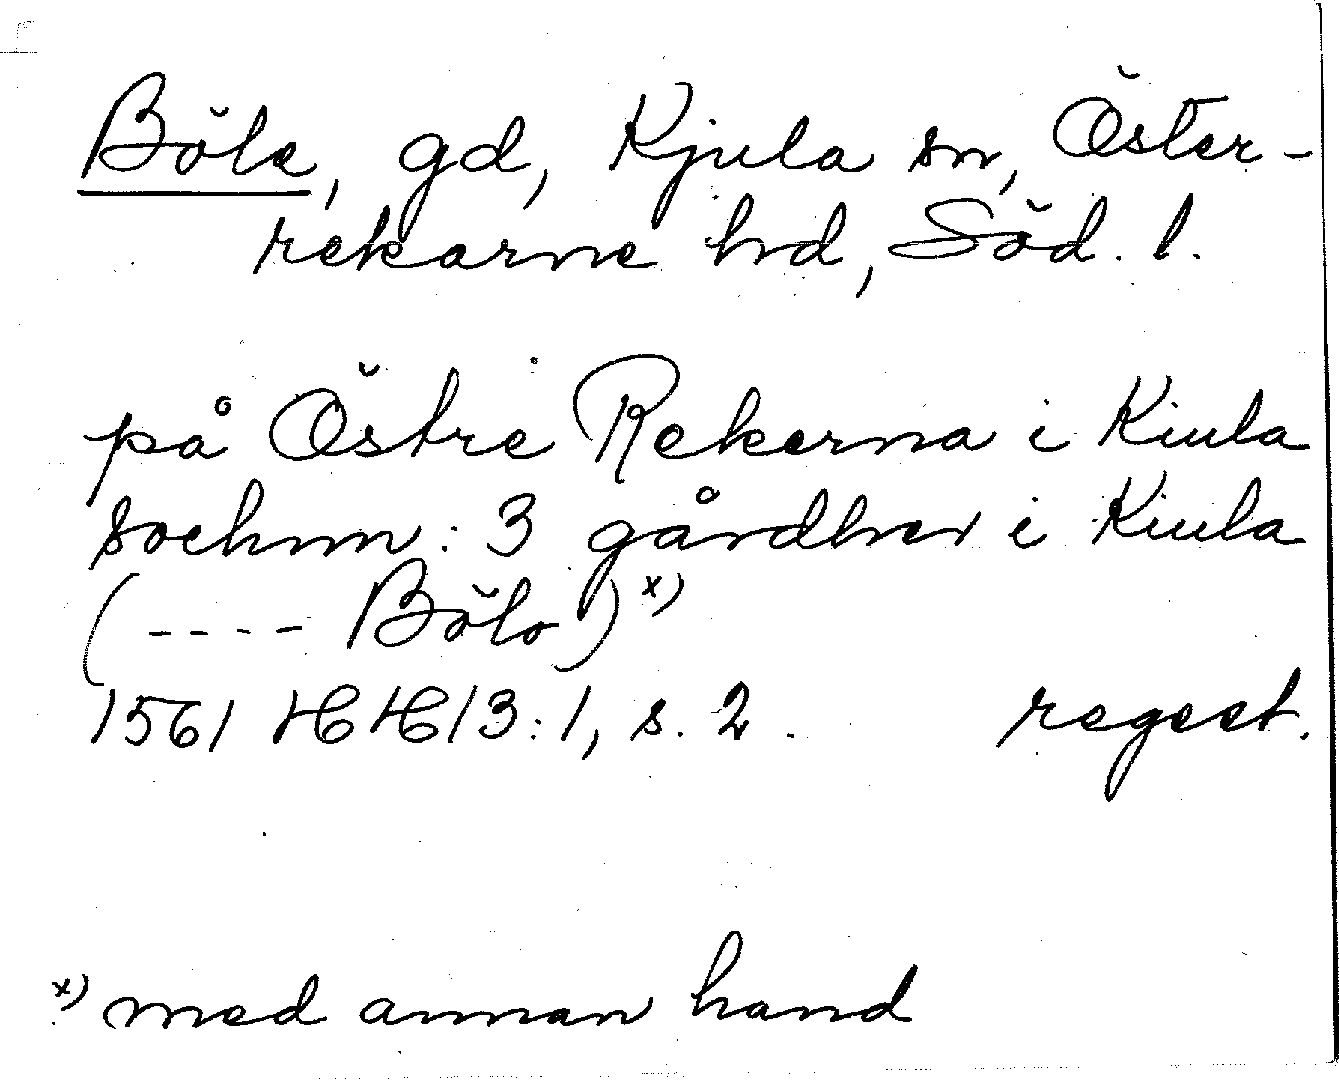 Böle, gd, Kjula sn, Öster-
rekarne hd, Söd. l.
på Östre Rekerna i Kiula
sochnn: 3 gårdher i Kiula
(---- Bölo)x)
1561 HH 13:1, s. 2. regest.
x) med annan hand